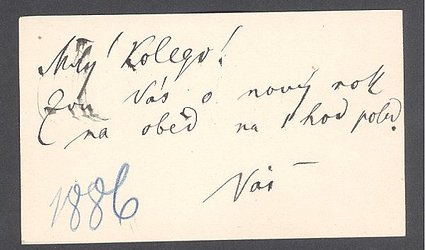 Milý! Kolego!
Zvu Vás o nový rok
na oběd na 1 hod poled.
Váš
1886